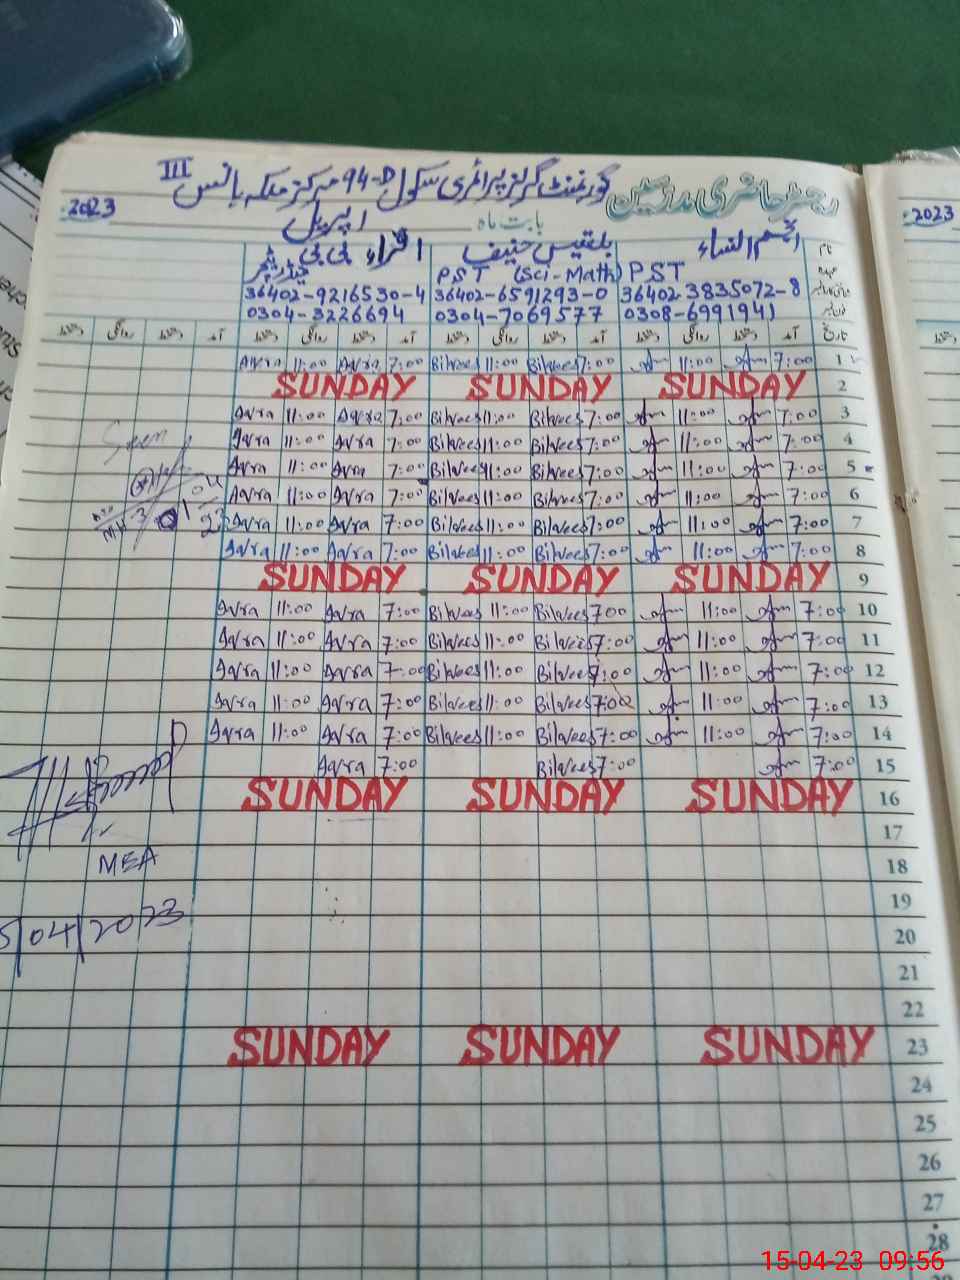 رجسٹر حاضری مدرسین گورنمنٹ گرلز پرائمری سکول 94-D مرکز ملکہ ہانس III
بابت ماہ اپریل 2023
2023
نام انجم النساء بلقیس حنیف اقراء بی بی
عہدہ PST PST (Sci-Math) ہیڈ ٹیچر
36402-3835072-8 36402-6591293-0 36402-9216530-4
0308-6991941 0304-7069577 0304-3226694
تاریخ آمد دستخط روانگی دستخط آمد دستخط روانگی دستخط آمد دستخط روانگی دستخط آمد دستخط روانگی دستخط
1 7:00 11:00 7:00 Bilqees 11:00 Bilqees 7:00 Aqra 11:00 Aqra
2 SUNDAY SUNDAY SUNDAY
3 7:00 11:00 7:00 Bilqees 11:00 Bilqees 7:00 Aqra 11:00 Aqra
4 7:00 11:00 7:00 Bilqees 11:00 Bilqees 7:00 Aqra 11:00 Aqra
5 7:00 11:00 7:00 Bilqees 11:00 Bilqees 7:00 Aqra 11:00 Aqra
6 7:00 11:00 7:00 Bilqees 11:00 Bilqees 7:00 Aqra 11:00 Aqra
7 7:00 11:00 7:00 Bilqees 11:00 Bilqees 7:00 Aqra 11:00 Aqra
8 7:00 11:00 7:00 Bilqees 11:00 Bilqees 7:00 Aqra 11:00 Aqra
9 SUNDAY SUNDAY SUNDAY
10 7:00 11:00 7:00 Bilqees 11:00 Bilqees 7:00 Aqra 11:00 Aqra
11 7:00 11:00 7:00 Bilqees 11:00 Bilqees 7:00 Aqra 11:00 Aqra
12 7:00 11:00 7:00 Bilqees 11:00 Bilqees 7:00 Aqra 11:00 Aqra
13 7:00 11:00 7:00 Bilqees 11:00 Bilqees 7:00 Aqra 11:00 Aqra
14 7:00 11:00 7:00 Bilqees 11:00 Bilqees 7:00 Aqra 11:00 Aqra
15 7:00 7:00 Bilqees 7:00 Aqra
16 SUNDAY SUNDAY SUNDAY
17
18
19
20
21
22
23 SUNDAY SUNDAY SUNDAY
24
25
26
27
28
Seen
MEA
5/04/2023
15-04-23 09:56